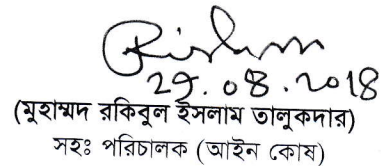 29.08.2018
(মুহাম্মদ রকিবুল ইসলাম তালুকদার)
সহঃ পরিচালক (আইন কোষ)